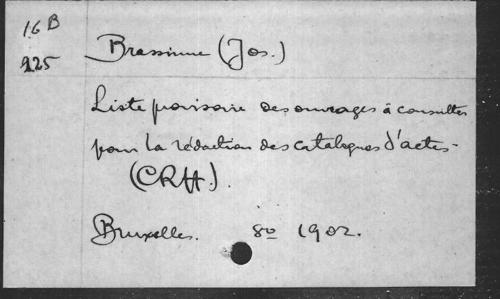 16 B
225
Brassinne (Jos.)
Liste provisoire des ouvrages à consulter
pour la rédaction des catalogues d'actes -
(CRH.).
Bruxelles. 8º 1902.